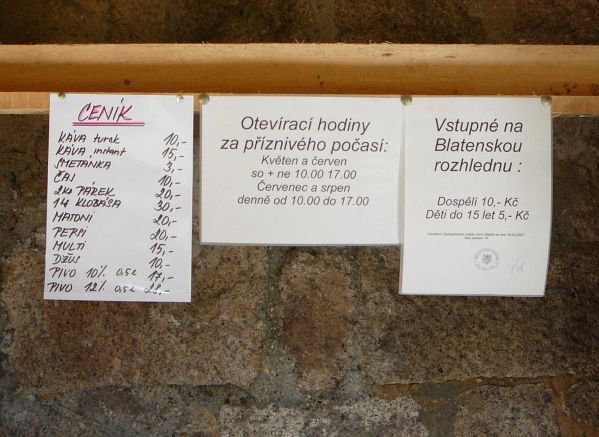 CENÍK
KÁVA turek 10,-
KÁVA instant 15,-
SMETANKA 3,-
ČAJ 10,-
2ks PÁREK 20,-
1/4 KLOBÁSA 30,-
MATONI 20,-
PEPSI 20,-
MULTI 15,-
DŽUS 10,-
PIVO 10% 0,5l 17,-
PIVO 12% 0,5l
Otevírací hodiny
za příznivého počasí:
Květen a červen
so + ne 10.00 17.00
Červenec a srpen
denně od 10.00 do 17.00
Vstupné na
Blatenskou
rozhlednu :
Dospělí 10,- Kč
Děti do 15 let 5,- Kč